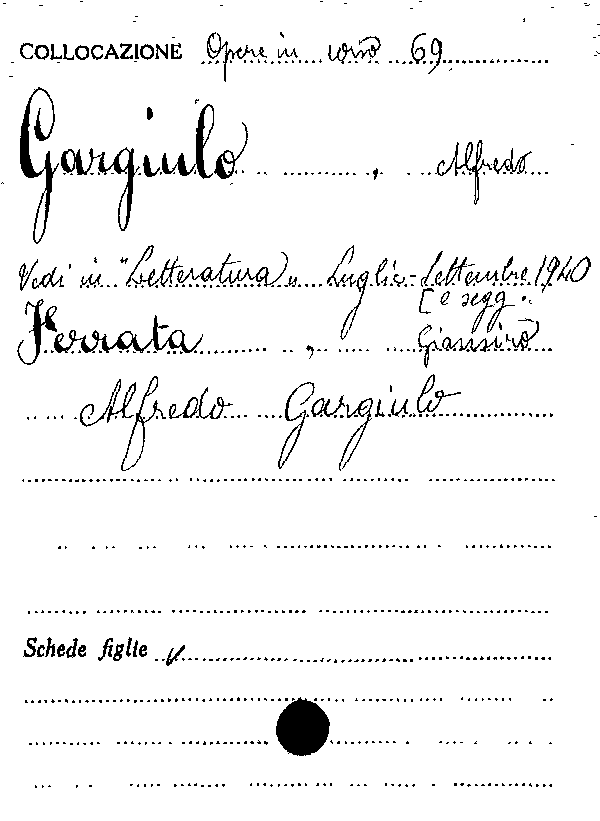 COLLOCAZIONE Opere in corso 69
Gargiulo, Alfredo
Vedi in "Letteratura" Luglio-Settembre 1940
[e segg.
Ferrata, Giansiro
Alfredo Gargiulo
Schede figlie